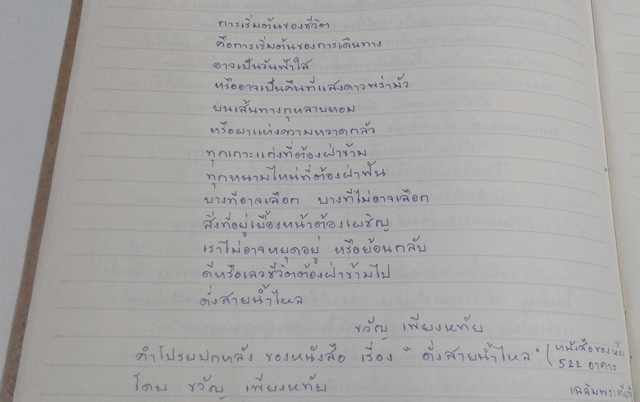 การเริ่มต้นของชีวิต
คือการเริ่มต้นของการเดินทาง
อาจเป็นวันฟ้าใส
หรืออาจเป็นคืนที่แสงดาวพร่ามัว
บนเส้นทางกุหลาบหอม
หรือผาแห่งความหวาดกลัว
ทุกเกาะแก่งที่ต้องฝ่าข้าม
ทุกหนามไหน่ที่ต้องฝ่าฟัน
บางทีอาจเลือก บางทีไม่อาจเลือก
สิ่งที่อยู่เบื้องหน้าต้องเผชิญ
เราไม่อาจหยุดอยู่ หรือย้อนกลับ
ดีหรือเลวชีวิตต้องฝ่าข้ามไป
ดั่งสายน้ำไหล
ขวัญ เพียงหทัย
คำโปรยปกหลัง ของหนังสือ เรื่อง " ดั่งสายน้ำไหล " (หนังสือของห้อง
โดย ขวัญ เพียงหทัย
522 อาคาร
เฉลิมพระเกียรติ